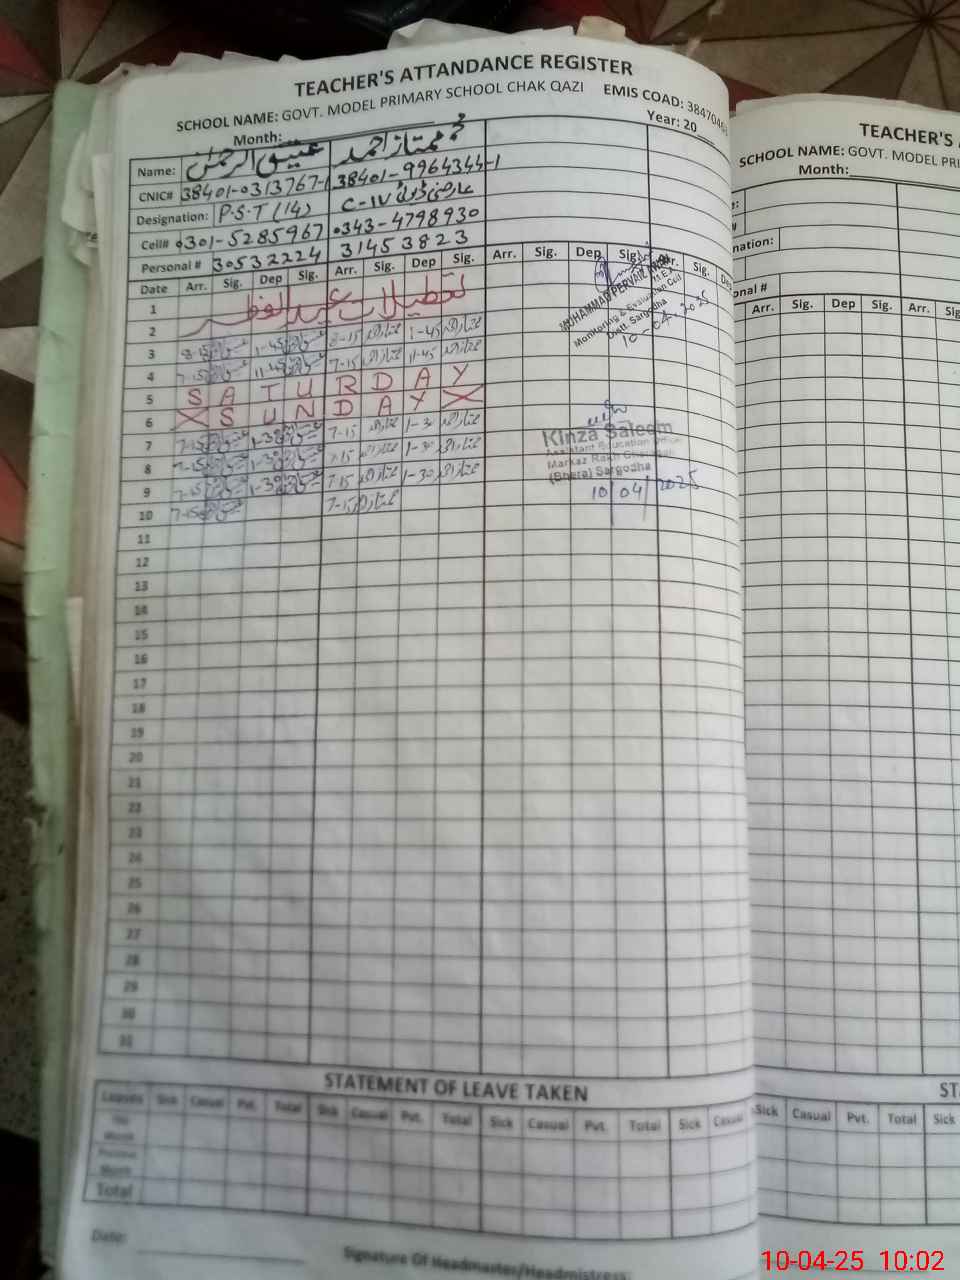 TEACHER'S ATTANDANCE REGISTER
SCHOOL NAME: GOVT. MODEL PRIMARY SCHOOL CHAK QAZI EMIS COAD: 384704
Month: Year: 20
Name: عتیق الرحمٰن محمد ممتاز احمد
CNIC# 38401-0313767-1 38401-9964344-1
Designation: P.S.T (14) C-IV عارضی
Cell# 0301-5285967 0343-4798930
Personal # 30532224 31453823
Date Arr. Sig. Dep Sig. Arr. Sig. Dep Sig. Arr. Sig. Dep Sig. Arr. Sig. De
1 تعطیلات عید الفطر
2
3 8-15 1-45 8-15 ممتاز احمد 1-45 ممتاز احمد
4 7-15 11-45 7-15 ممتاز احمد 11-45 ممتاز احمد
5 SATURDAY
6 X SUNDAY X
7 7-15 1-30 7-15 ممتاز احمد 1-30 ممتاز احمد
8 7-15 1-30 7-15 ممتاز احمد 1-30 ممتاز احمد
9 7-15 1-30 7-15 ممتاز احمد 1-30 ممتاز احمد
10 7-15 7-15 ممتاز احمد
MUHAMMAD PERVAIZ
Monitoring & Evaluation Cell
Distt. Sargodha
10-04-2025
Kinza Saleem
Assistant Education Officer
Markaz Rakh
(Bhera) Sargodha
10/04/2025
11
12
13
14
15
16
17
18
19
20
21
22
23
24
25
26
27
28
29
30
31
STATEMENT OF LEAVE TAKEN
Leaves Sick Casual Pvt. Total Sick Casual Pvt. Total Sick Casual Pvt. Total Sick Casual
Total
Date:
Signature Of Headmaster/Headmistress
TEACHER'S
SCHOOL NAME: GOVT. MODEL PRI
Month:
Arr. Sig. Dep Sig. Arr. Sig. Dep Sig
ST
Sick Casual Pvt. Total Sick
10-04-25 10:02